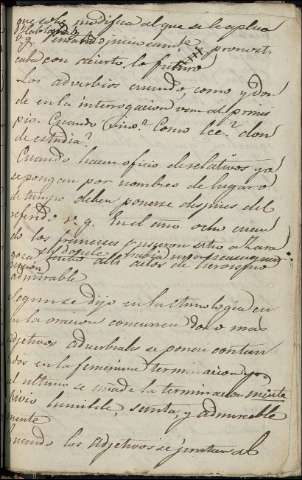 que estos modifica al que se le aplica
v.g. Hablando ingenuamte. pronosti-
caba con acierto lo futuro
Los adverbios cuando, como y don
de en la interrogacion van al princi
pio. Cuando vino? Como lee? don
de estudia?
Cuando hacen oficio de relativos ya
se pongan por nombres de lugar o
de tiempo deben ponerse despues del
v. g. En el año ocho cuan
do los franceses pusieron sitio a Zara
goza
admirable
Segun se dijo en la etimologia cu
en la oracion concurren dos o mas
adjetivos adverbiales se ponen contan
dos en la femenina terminacion y
al ultimo se añade la terminacion mente
humilde, santa, y admirable
mente
Cuando los adjetivos se juntan al